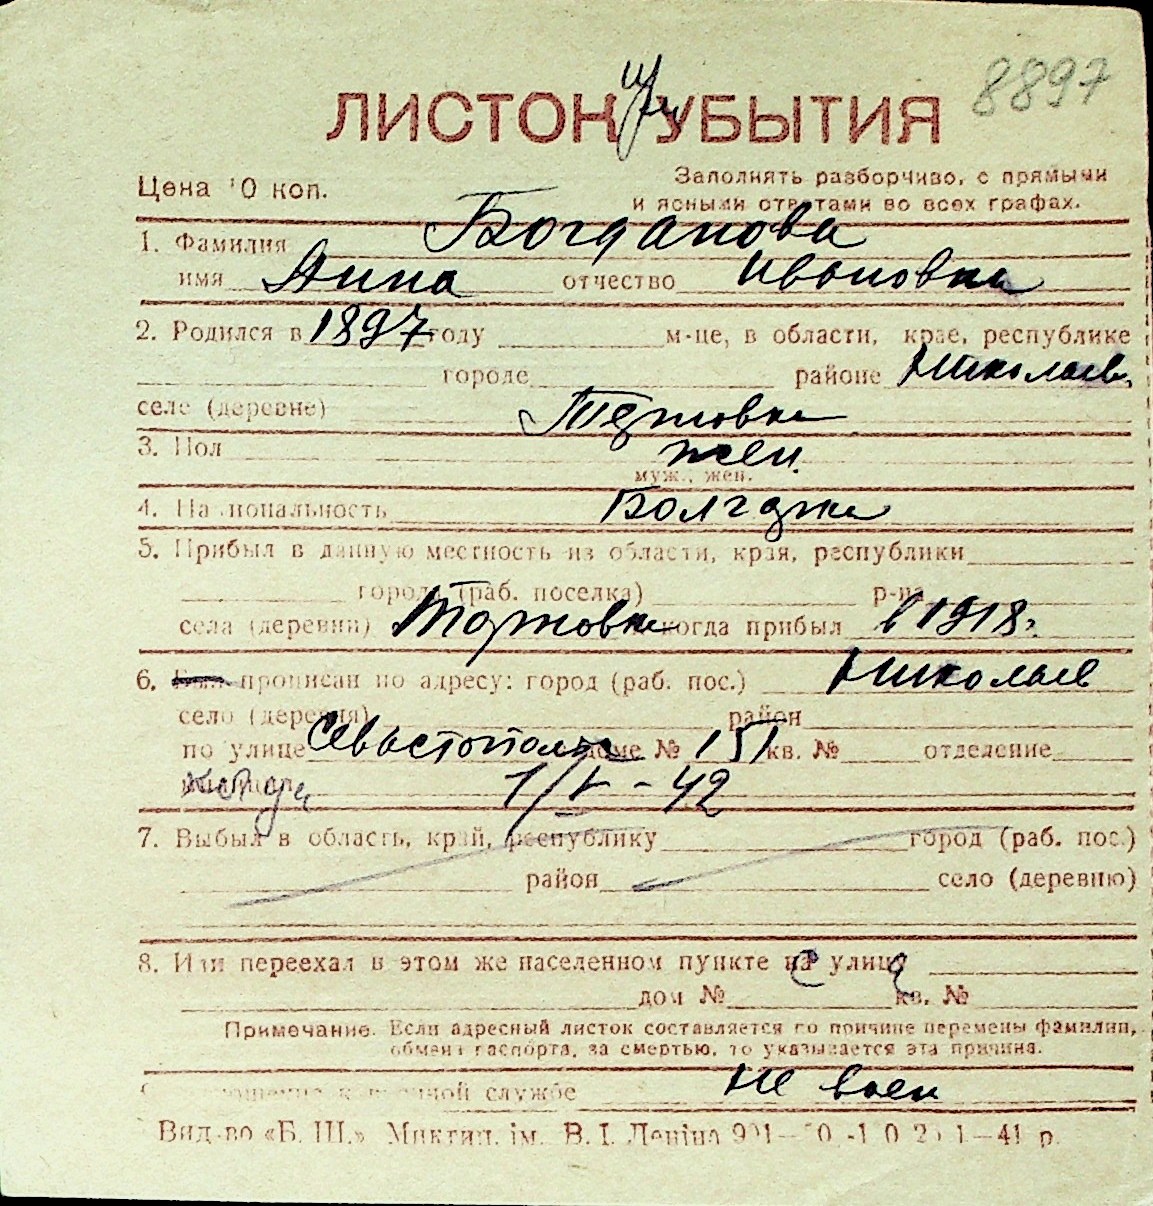 8897
ЛИСТОК УБЫТИЯ
Цена 10 коп.
Заполнять разборчиво, с прямыми
и ясными ответами во всех графах.
1. Фамилия Богданова
имя Анна отчество Ивановна
2. Родился в 1897 году м-це, в области, крае, республике
городе районе Николаев.
селе (деревне) Терновка
3. Пол жен.
муж., жен.
4. Национальность Болгарка
5. Прибыл в данную местность из области, края, республики
города (раб. поселка) р-на
села (деревни) Терновка когда прибыл в 1918г.
6. Был прописан по адресу: город (раб. пос.) Николаев
село (деревня) район
по улице Севастопольск доме № 151 кв. № отделение
милиции 1/V - 42
7. Выбыл в область, край, республику город (раб. пос.)
район село (деревню)
8. Или переехал в этом же населенном пункте на улицу
дом № кв. №
Примечание. Если адресный листок составляется по причине перемены фамилии,
обмена паспорта, за смертью, то указывается эта причина.
отношение к военной службе Не воен
Вид-во «Б. Ш.» Миктип. ім. В. І. Леніна